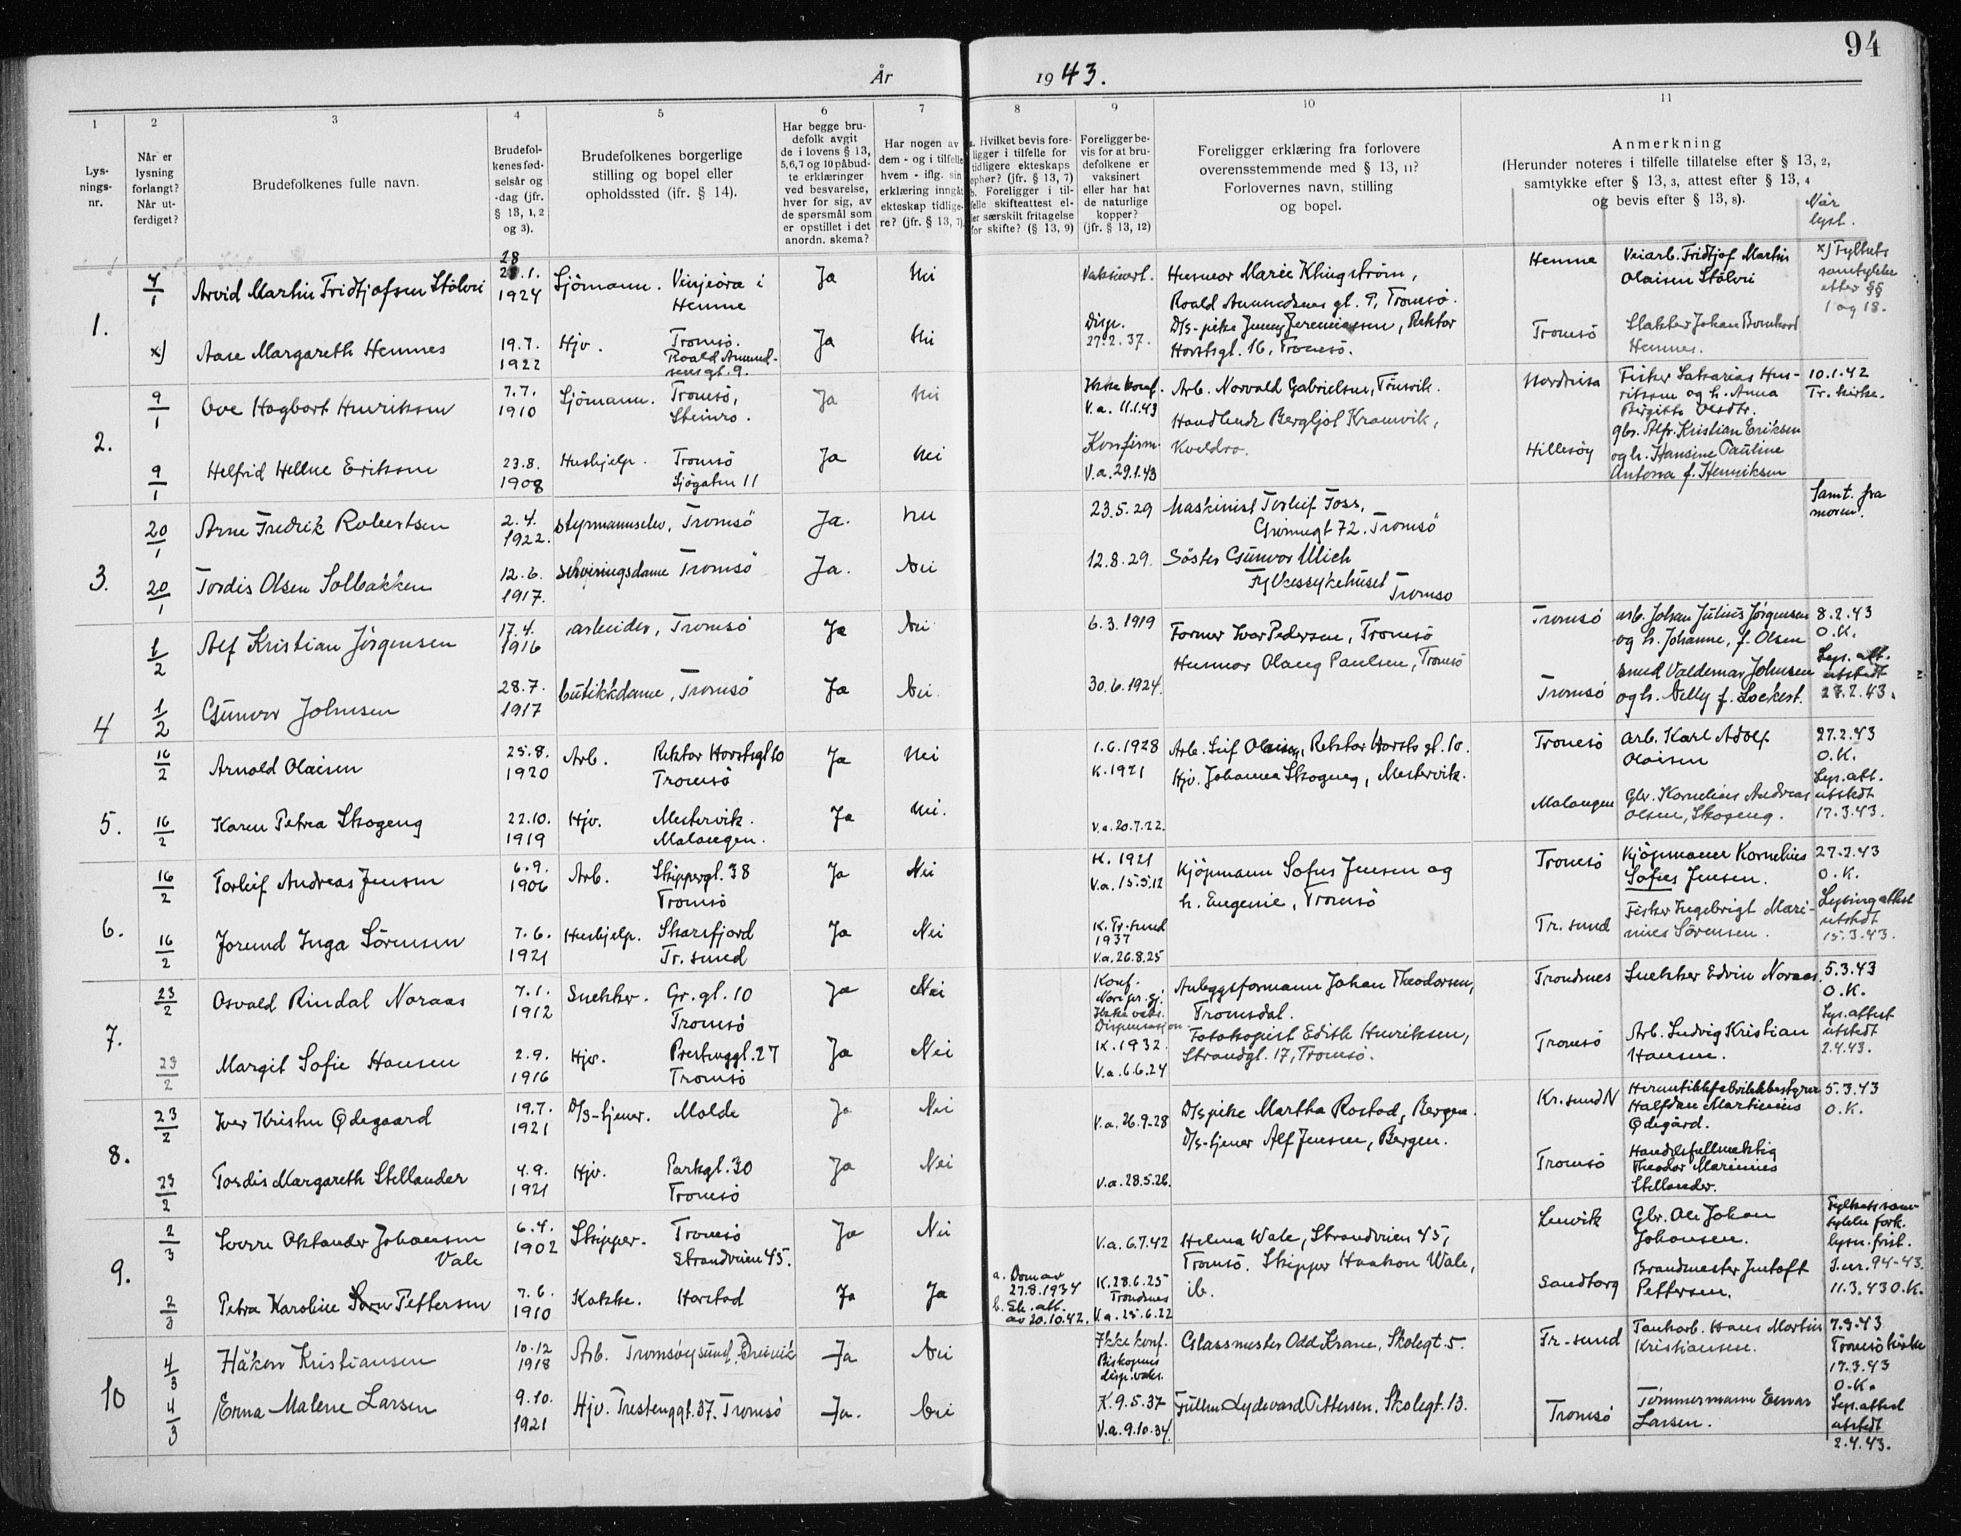 94
År 1943.
1 2 3 4 5 6 7 8 9 10 11
Lys-
nings-
nr.
Når er
lysning
forlangt?
Når ut-
ferdiget?
Brudefolkenes fulle navn.
Brudefol-
kenes fød-
selsår og
-dag (jfr.
§ 13, 1, 2
og 3).
Brudefolkenes borgerlige
stilling og bopel eller
opholdssted (jfr. § 14).
Har begge bru-
defolk avgit
de i lovens § 13,
5, 6, 7 og 10 påbud-
te erklæringer
ved besvarelse,
hver for sig, av
de spørsmål som
er opstillet i det
anordn. skema?
Har nogen av
dem - og i tilfelle
hvem - iflg. sin
erklæring inngåt
ekteskap tidlige-
re? (jfr. § 13, 7).
a. Hvilket bevis fore-
ligger i tilfelle for
tidligere ekteskaps
ophør? (jfr. § 13, 7)
b. Foreligger i til-
felle skifteattest el-
ler særskilt fritagelse
for skifte? (§ 13, 9)
Foreligger be-
vis for at bru-
defolkene er
vaksinert
eller har hat
de naturlige
kopper?
(jfr. § 13, 12)
Foreligger erklæring fra forlovere
overensstemmende med § 13, 11?
Forlovernes navn, stilling
og bopel.
Anmerkning
(Herunder noteres i tilfelle tillatelse efter § 13, 2,
samtykke efter § 13, 3, attest efter § 13, 4
og bevis efter § 13, 8).
Når
lyst.
1.
4/1 Arvid Martin Fridtjofsen Stölvi 28.1. 1924 Sjömann. Vinjeöra i Hemne Ja Nei Vaksinert. Husmor Marie Klingström,
Roald Amundsens gt. 9, Tromsö.
Hemne Veiarb. Fridtjof Martin
Olaisen Stölvi
x) Fylkets
samtykke
etter §§
1 og 18.
x) Aase Margareth Hemnes 19.7. 1922 Hjv. Tromsö. Roald Amund-
sens gt. 9. Ja Nei Disp. 27.2.37. D/s-pike Jenny Jeremiassen, Rektor
Horstsgt. 16, Tromsö.
Tromsö Slakter Johan Bernhard
Hemnes.
2.
9/1 Ove Hagbart Henriksen 7.7. 1910 Sjömann. Tromsö, Steinro. Ja Nei Ikke konf. V.a. 11.1.43 Arb. Norvald Gabrielsen,
Nordreisa Fisker Sakarias Hen-
riksen og h. Anna
Bergitte Olsdtr.
10.1.42
Tr. kirke.
9/1 Helfrid Helene Eriksen 23.8. 1908 Hushjelp. Tromsö Sjögaten 11 Ja Nei Konfirm. V.a. 29.1.43 Handlende Bergljot Kramvik,
Kvaldra.
Hillesöy gbr. Alfr. Kristian Eriksen
og h. Hansine Pauline
Antona f. Henriksen
3.
20/1 Arne Fredrik Robertsen 2.4. 1922. styrmannselev, Tromsö Ja. Nei 23.5.29 Maskinist Torleif Foss,
Grönnegt 72. Tromsö
Samt. fra
moren.
20/1 Tordis Olsen Solbakken 12.6. 1917. serveringsdame Tromsö Ja. Nei 12.8.29. Söster Gunvor Ulich
Fylkessykehuset
Tromsö
4
1/2 Alf Kristian Jörgensen 17.4. 1916 arbeider, Tromsö Ja Nei 6.3.1919 Former Ivar Pedersen, Tromsö
Tromsö arb. Johan Julius Jörgensen
og h. Johanne, f. Olsen
8.2.43
O.K.
1/2 Gunvor Johnsen 28.7. 1917 butikkdame, Tromsö Ja Nei. 30.6.1924. Husmor Olaug Paulsen, Tromsö
Tromsö smed Valdemar Johnsen
og h. Nelly f. Lockert.
Lys. att.
utstedt
27.2.43.
5.
16/2 Arnold Olaisen 25.8. 1920 Arb. Rektor Horstsgt 10 Tromsö Ja Nei 1.6.1928 K. 1921 Arb. Leif Olaisen, Rektor Horsts gt. 10.
Tromsö Arb. Karl Adolf
Olaisen
27.2.43
O.K.
16/2 Karen Petra Skogeng 22.10. 1919 Hjv. Mestervik. Malangen. Ja Nei. V.a. 20.7.22. Hjv. Johanna Skogeng, Mestervik.
Malangen Gbr. Kornelius Andreas
Olsen, Skogeng.
Lys. att.
utstedt
17.3.43.
6.
16/2 Torleif Andreas Jensen 6.9. 1906 Arb. Skippergt. 38 Tromsö Ja Nei K. 1921 V.a. 15.5.12 Kjöpmann Sofus Jensen og
h. Eugenie, Tromsö
Tromsö Kjöpmann Kornelius
Sofus Jensen.
27.2.43
O.K.
16/2 Jorund Inga Sörensen 7.6. 1921 Hushjelp. Skarsfjord Tr. sund Ja Nei K. Tr.-sund 1937 V.a. 26.8.25
Tr. sund Fisker Ingebrigt Mari-
nius Sörensen.
Lysingattest
utstedt
15.3.43.
7.
23/2 Osvald Rindal Noraas 7.1. 1912 Snekker. Gr. gt. 10 Tromsö Ja Nei Konf. Ikke vaks. Dispensasjon. Anleggsformann Johan Theodorsen,
Tromsdal.
Trondnes Snekker Edvin Noraas.
5.3.43
O.K.
23/2 Margit Sofie Hansen 2.9. 1916 Hjv. Prestenggt. 27 Tromsö Ja Nei K. 1932. V.a. 6.6.24 Fotokopist Edith Henriksen,
Strandgt. 17, Tromsö.
Tromsö Arb. Ludvig Kristian
Hansen.
Lys. attest
utstedt
2.4.43.
8.
23/2 Iver Kristen Ødegaard 19.7. 1921 D/s-tjener. Molde Ja Nei V.a. 26.9.28 D/s pike Martha Rostad, Bergen.
D/s-tjener Alf Jensen, Bergen.
Kr. sund N Hermetikkfabrikkbestyrer
Halfdan Martinius
Ødegård.
5.3.43
O.K.
23/2 Tordis Margareth Stellander 4.9. 1921 Hjv. Parkgt. 30 Tromsö Ja Nei V.a. 28.5.26.
Tromsö Handelsfullmektig
Theodor Marinius
Stellander.
9.
2/3 Sverre Oktander Johansen
Vale 6.4. 1902 Skipper. Tromsö Strandveien 45. Ja Nei V.a. 6.7.42 Helma Wale, Strandveien 45,
Tromsö. Skipper Haakon Wale,
ib.
Lenvik Gbr. Ole Johan
Johansen.
Fylkets sam-
tykke fork.
lysn. frist.
J.nr. 94-43.
2/3 Petra Karoline Pettersen 7.6. 1910 Kokke. Harstad Ja Ja a. Dom av
27.8.1934
b. Sk. att.
av 20.10.42. K. 28.6.25 Trondnes V.a. 25.6.22
Sandtorg Brandmester Jentoft
Pettersen.
11.3.43 O.K.
10
4/3 Håkon Kristiansen 10.12 1918 Arb. Tromsöysund, Ja Nei Ikke konf. Biskopens disp. vaks. Glassmester Odd Krane, Skolegt. 5.
Tr.-sund Tankarb. Hans Martin
Kristiansen.
7.3.43
Tromsö kirke
17.3.43
O.K.
4/3 Erna Malene Larsen 9.10. 1921 Hjv. Prestenggt. 37. Tromsö Ja. Nei K. 9.5.37 V.a. 9.10.34. Lydevard Pettersen. Skolegt. 13.
Tromsö Tömmermann Einar
Larsen.
Lys. attest
utstedt
2.4.43.